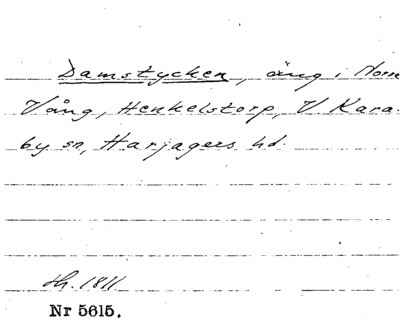 Damstycken, äng i Norre
Vång, Henkelstorp, V. Kara-
by sn, Harjagers hd.
1811
Nr 5615.